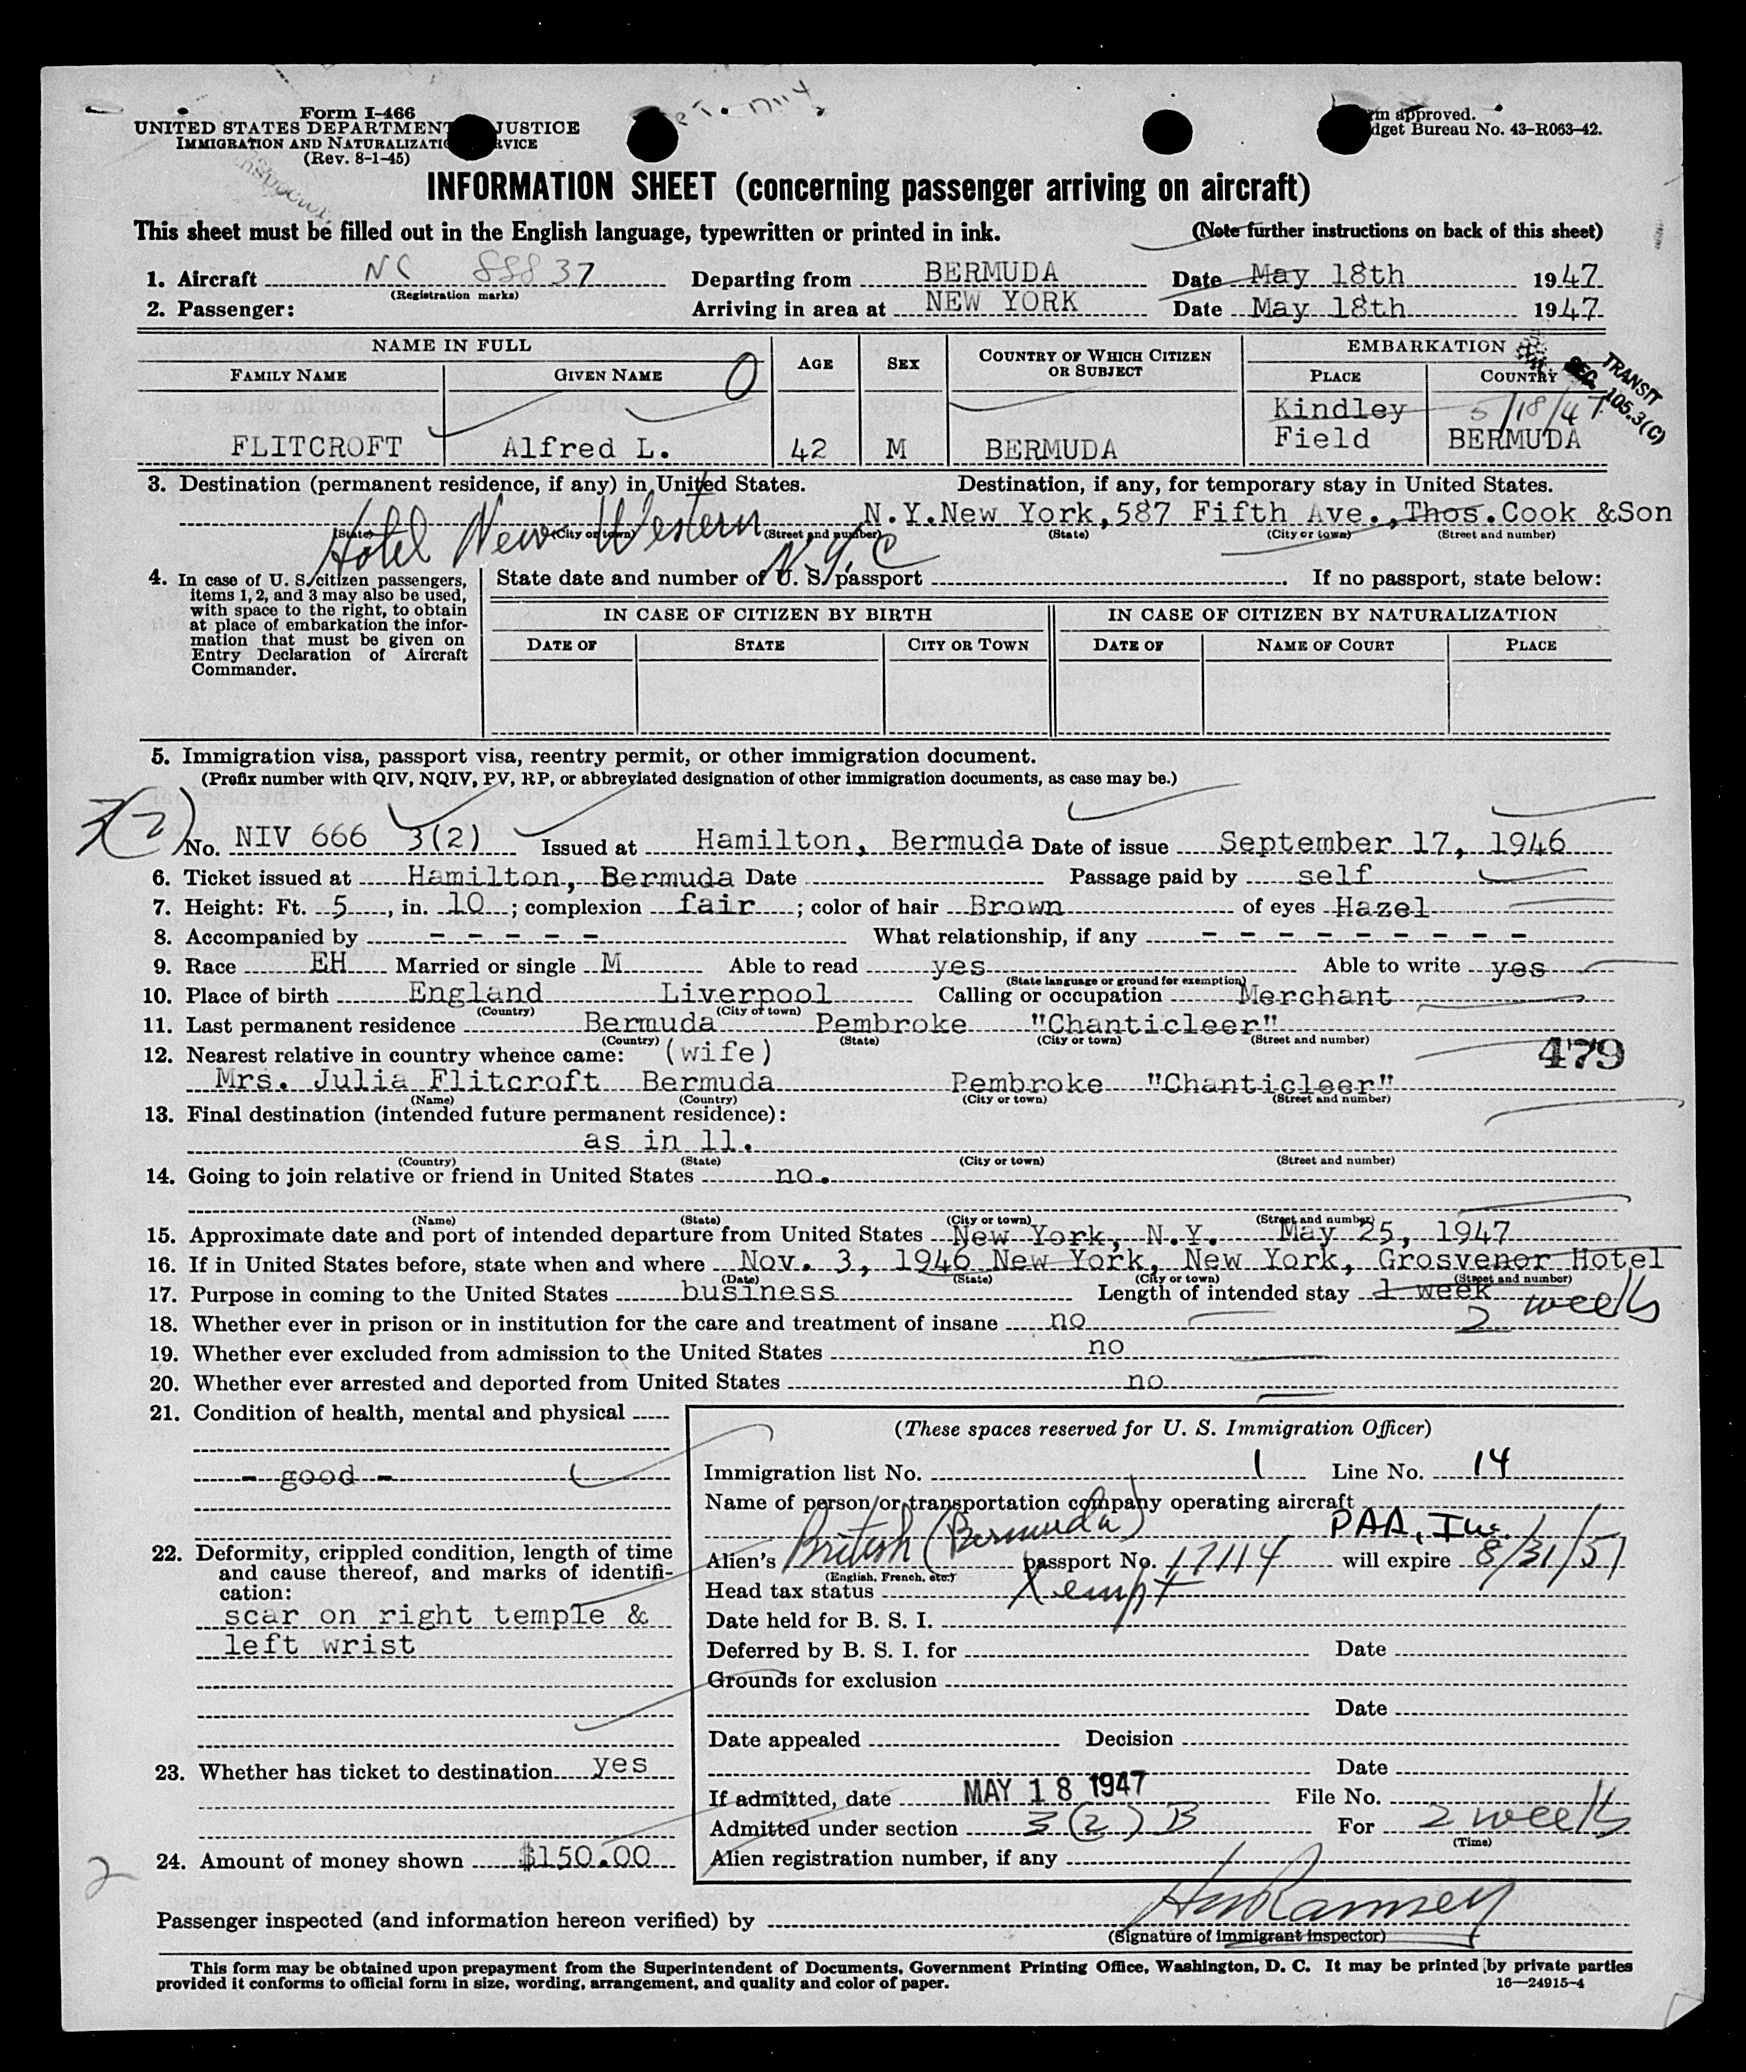 Form I-466
UNITED STATES DEPARTMENT JUSTICE
IMMIGRATION AND NATURALIZATION SERVICE
(Rev. 8-1-45)
Form approved.
Budget Bureau No. 43-R063-42.
INFORMATION SHEET (concerning passenger arriving on aircraft)
This sheet must be filled out in the English language, typewritten or printed in ink. (Note further instructions on back of this sheet)
1. Aircraft NC 88837 Departing from BERMUDA Date May 18th 1947
(Registration marks)
2. Passenger: Arriving in area at NEW YORK Date May 18th 1947
NAME IN FULL AGE SEX COUNTRY OF WHICH CITIZEN OR SUBJECT EMBARKATION
FAMILY NAME GIVEN NAME O PLACE COUNTRY
SEC. TRANSIT 105.3(C)
Kindley 5/18/47
FLITCROFT Alfred L. 42 M BERMUDA Field BERMUDA
3. Destination (permanent residence, if any) in United States. Destination, if any, for temporary stay in United States.
N.Y.New York,587 Fifth Ave.,Thos.Cook &Son
(State) (City or town) (Street and number) (State) (City or town) (Street and number)
Hotel New Western N.Y.C
4. In case of U. S. citizen passengers, items 1, 2, and 3 may also be used, with space to the right, to obtain at place of embarkation the information that must be given on Entry Declaration of Aircraft Commander.
State date and number of U. S. passport . If no passport, state below:
IN CASE OF CITIZEN BY BIRTH IN CASE OF CITIZEN BY NATURALIZATION
DATE OF STATE CITY OR TOWN DATE OF NAME OF COURT PLACE
5. Immigration visa, passport visa, reentry permit, or other immigration document.
(Prefix number with QIV, NQIV, PV, RP, or abbreviated designation of other immigration documents, as case may be.)
3(2)
No. NIV 666 3(2) Issued at Hamilton, Bermuda Date of issue September 17, 1946
6. Ticket issued at Hamilton, Bermuda Date Passage paid by self
7. Height: Ft. 5, in. 10; complexion fair; color of hair Brown of eyes Hazel
8. Accompanied by - - - - - What relationship, if any - - - - - - - - -
9. Race EH Married or single M Able to read yes Able to write yes
(State language or ground for exemption)
10. Place of birth England Liverpool Calling or occupation Merchant
(Country) (City or town)
11. Last permanent residence Bermuda Pembroke "Chanticleer"
(Country) (State) (City or town) (Street and number)
12. Nearest relative in country whence came: (wife) 479
Mrs. Julia Flitcroft Bermuda Pembroke "Chanticleer"
(Name) (Country) (City or town) (Street and number)
13. Final destination (intended future permanent residence):
as in 11.
(Country) (State) (City or town) (Street and number)
14. Going to join relative or friend in United States no.
(Name) (State) (City or town) (Street and number)
15. Approximate date and port of intended departure from United States New York, N.Y. May 25, 1947
16. If in United States before, state when and where Nov. 3, 1946 New York, New York, Grosvenor Hotel
(Date) (State) (City or town) (Street and number)
17. Purpose in coming to the United States business Length of intended stay 1 week
2 weeks
18. Whether ever in prison or in institution for the care and treatment of insane no
19. Whether ever excluded from admission to the United States no
20. Whether ever arrested and deported from United States no
21. Condition of health, mental and physical
- good -
22. Deformity, crippled condition, length of time and cause thereof, and marks of identification:
scar on right temple &
left wrist
23. Whether has ticket to destination yes
24. Amount of money shown $150.00
2
(These spaces reserved for U. S. Immigration Officer)
Immigration list No. 1 Line No. 14
Name of person or transportation company operating aircraft
PAA, Inc.
Alien's British (Bermuda) passport No. 17114 will expire 8/31/51
(English, French, etc.)
Head tax status Xempt
Date held for B. S. I.
Deferred by B. S. I. for Date
Grounds for exclusion
Date
Date appealed Decision
Date
If admitted, date MAY 18 1947 File No.
Admitted under section 3(2) B For 2 weeks
(Time)
Alien registration number, if any
Passenger inspected (and information hereon verified) by
(Signature of Immigrant Inspector)
This form may be obtained upon prepayment from the Superintendent of Documents, Government Printing Office, Washington, D. C. It may be printed by private parties
provided it conforms to official form in size, wording, arrangement, and quality and color of paper. 16—24915-4